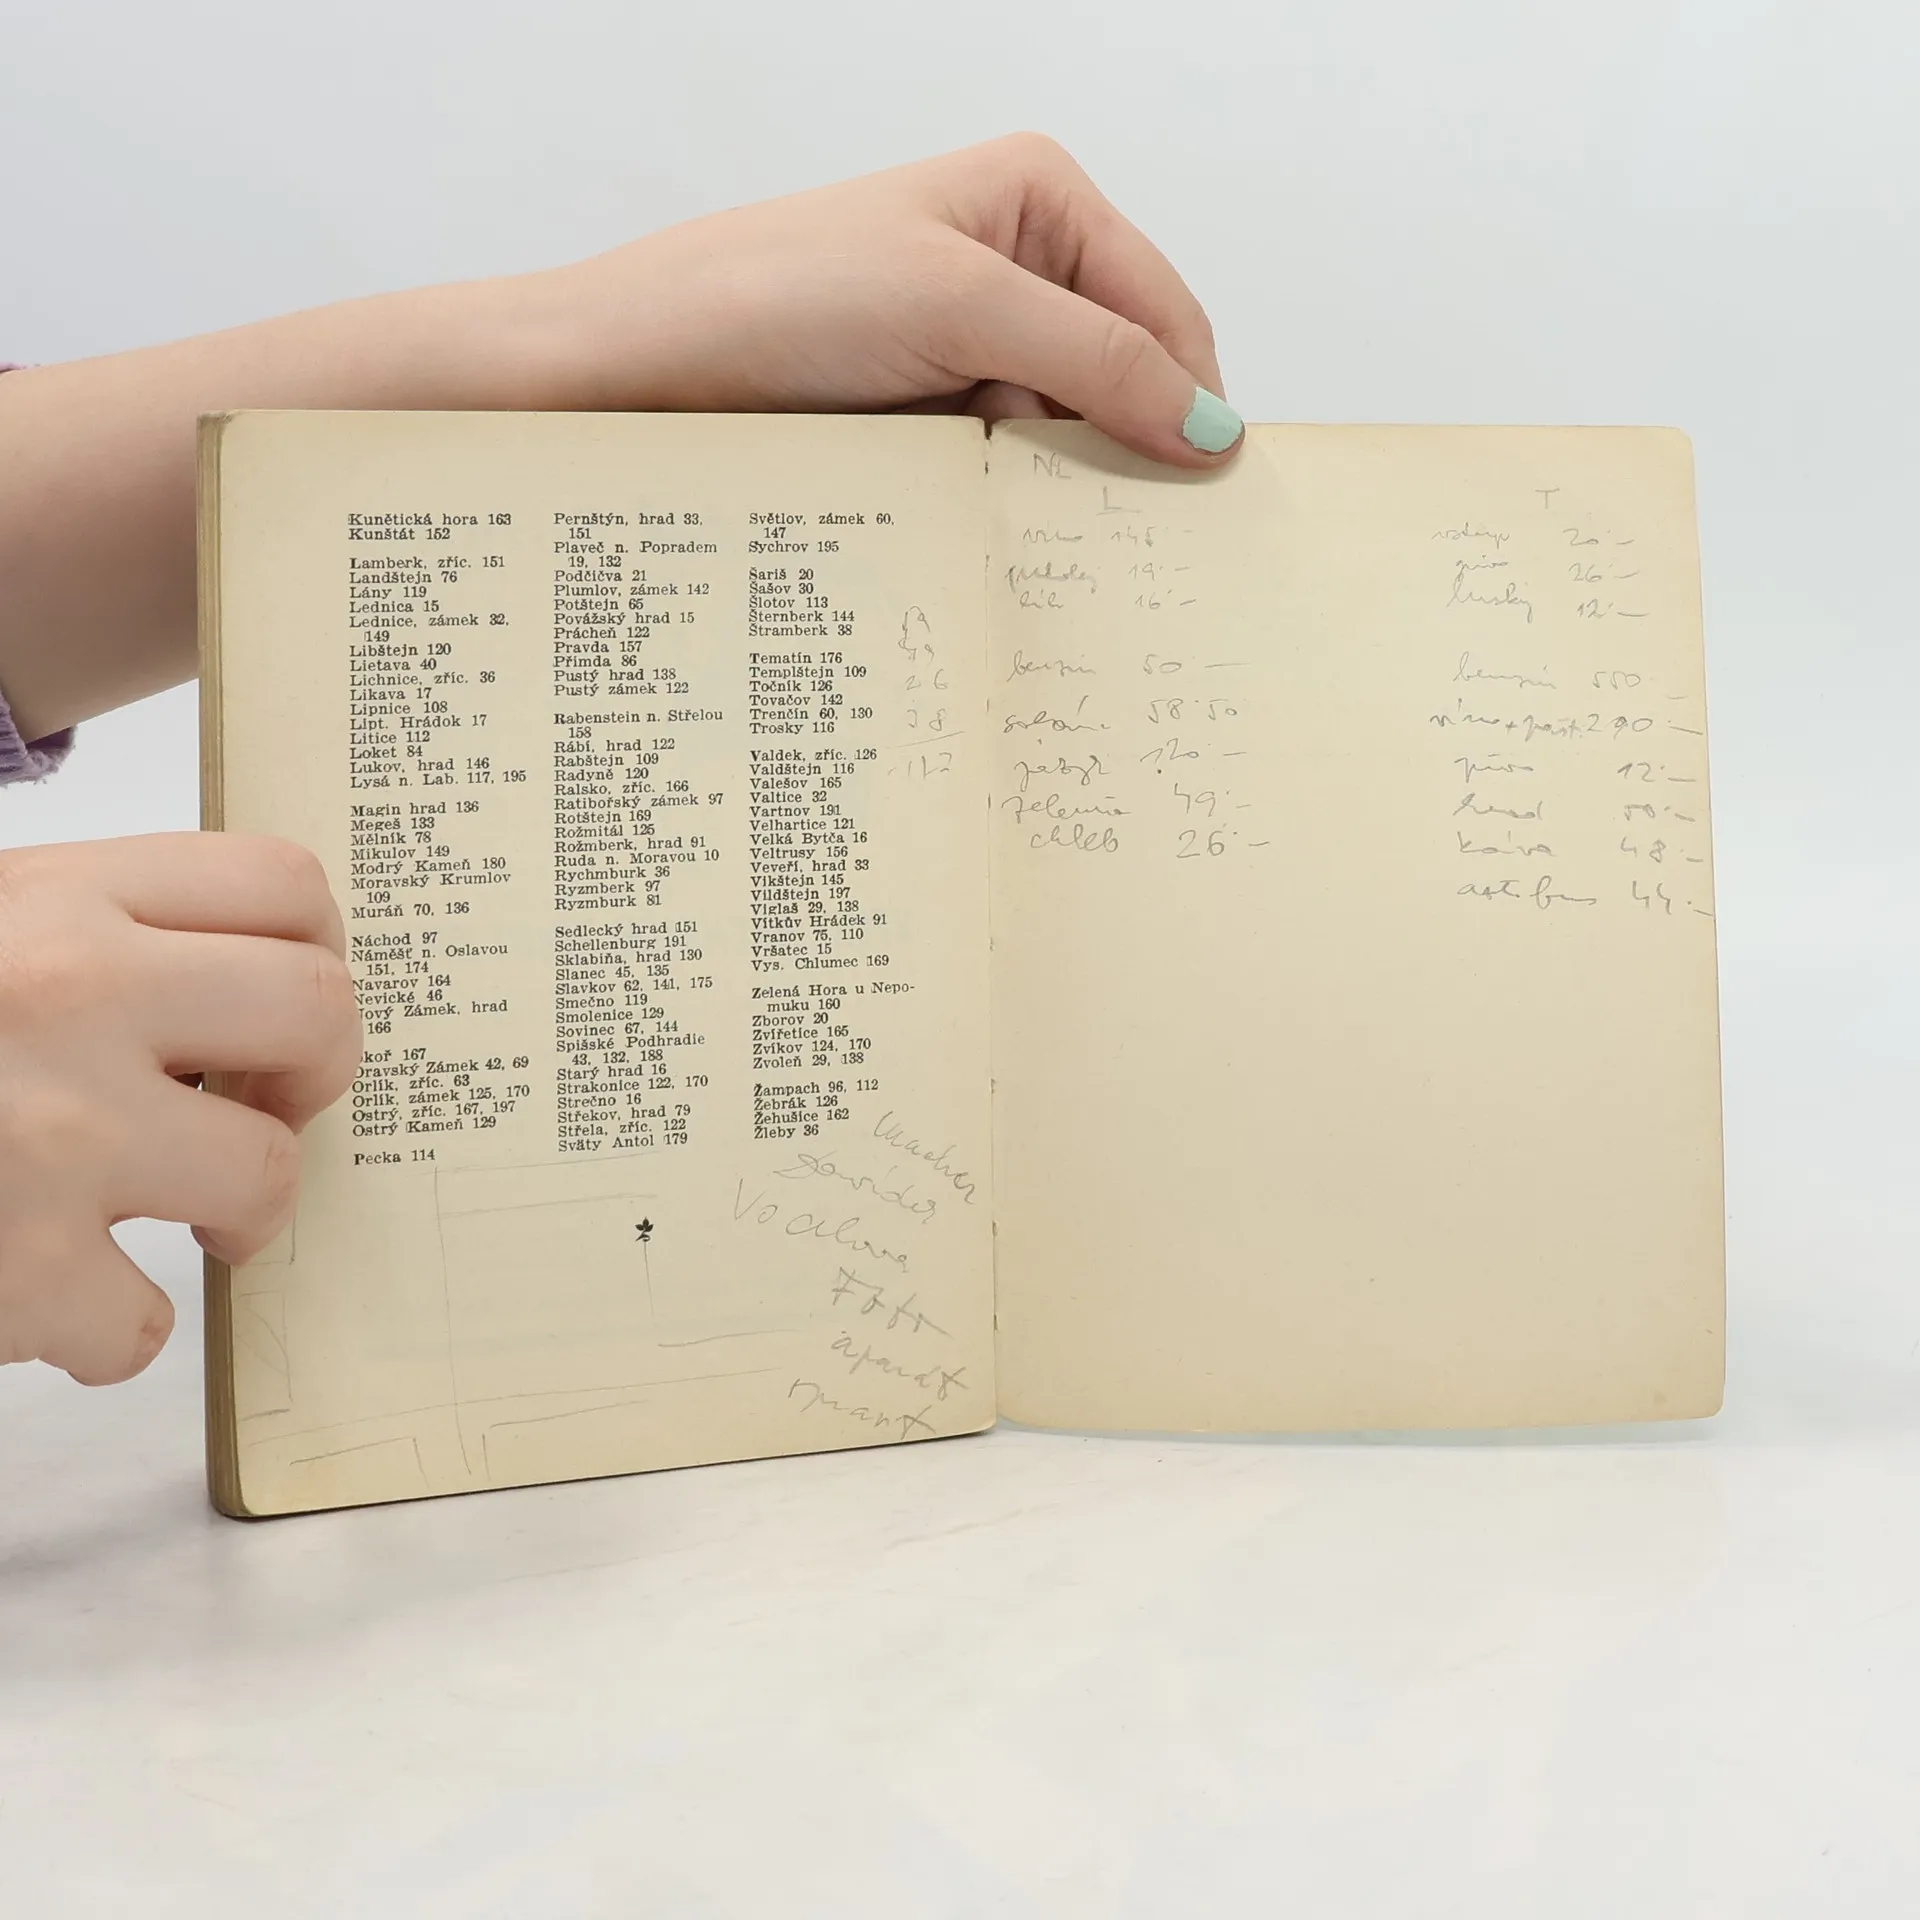 Kunětická hora 163
Kunštát 152
Lamberk, zříc. 151
Landštejn 76
Lány 119
Lednica 15
Lednice, zámek 32,
149
Libštejn 120
Lietava 40
Lichnice, zříc. 36
Likava 17
Lipnice 108
Lipt. Hrádok 17
Litice 112
Loket 84
Lukov, hrad 146
Lysá n. Lab. 117, 195
Magin hrad 136
Megeš 133
Mělník 78
Mikulov 149
Modrý Kameň 180
Moravský Krumlov
109
Muráň 70, 136
Náchod 97
Náměšť n. Oslavou
151, 174
Navarov 164
Nevické 46
Nový Zámek, hrad
166
koř 167
Oravský Zámek 42, 69
Orlík, zříc. 63
Orlík, zámek 125, 170
Ostrý, zříc. 167, 197
Ostrý Kameň 129
Pecka 114
Pernštýn, hrad 33,
151
Plaveč n. Popradem
19, 132
Podčičva 21
Plumlov, zámek 142
Potštejn 65
Povážský hrad 15
Prácheň 122
Pravda 157
Přimda 86
Pustý hrad 138
Pustý zámek 122
Rabenstein n. Střelou
158
Rábí, hrad 122
Rabštejn 109
Radyně 120
Ralsko, zříc. 166
Ratibořský zámek 97
Rotštejn 169
Rožmitál 125
Rožmberk, hrad 91
Ruda n. Moravou 10
Rychmburk 36
Ryzmberk 97
Ryzmburk 81
Sedlecký hrad 151
Schellenburg 191
Sklabiňa, hrad 130
Slanec 45, 135
Slavkov 62, 141, 175
Smečno 119
Smolenice 129
Sovinec 67, 144
Spišské Podhradie
43, 132, 188
Starý hrad 16
Strakonice 122, 170
Strečno 16
Střekov, hrad 79
Střela, zříc. 122
Svätý Antol 179
Světlov, zámek 60,
147
Sychrov 195
Šariš 20
Šašov 30
Šlotov 113
Šternberk 144
Štramberk 38
Tematín 176
Templštejn 109
Točník 126
Tovačov 142
Trenčín 60, 130
Trosky 116
Valdek, zříc. 126
Valdštejn 116
Valešov 165
Valtice 32
Vartnov 191
Velhartice 121
Velká Bytča 16
Veltrusy 156
Veveří, hrad 33
Vikštejn 145
Vildštejn 197
Vígľaš 29, 138
Vítkův Hrádek 91
Vranov 75, 110
Vršatec 15
Vys. Chlumec 169
Zelená Hora u Nepo-
muku 160
Zborov 20
Zvířetice 165
Zvíkov 124, 170
Zvoleň 29, 138
Žampach 96, 112
Žebrák 126
Žehušice 162
Žleby 36
26
38
Foto
aparát
L
víno 145.-
19.-
16.-
benzin 50.-
58.50
jazyk 120.-
zelenina 49.-
chleb 26.-
T
vstup 20.-
pivo 26.-
12.-
benzin 550.-
290.-
pivo 12.-
hrad 50.-
káva 48.-
autobus 44.-